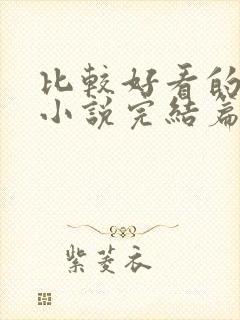 比較好看的
小說完結篇
紫菱衣